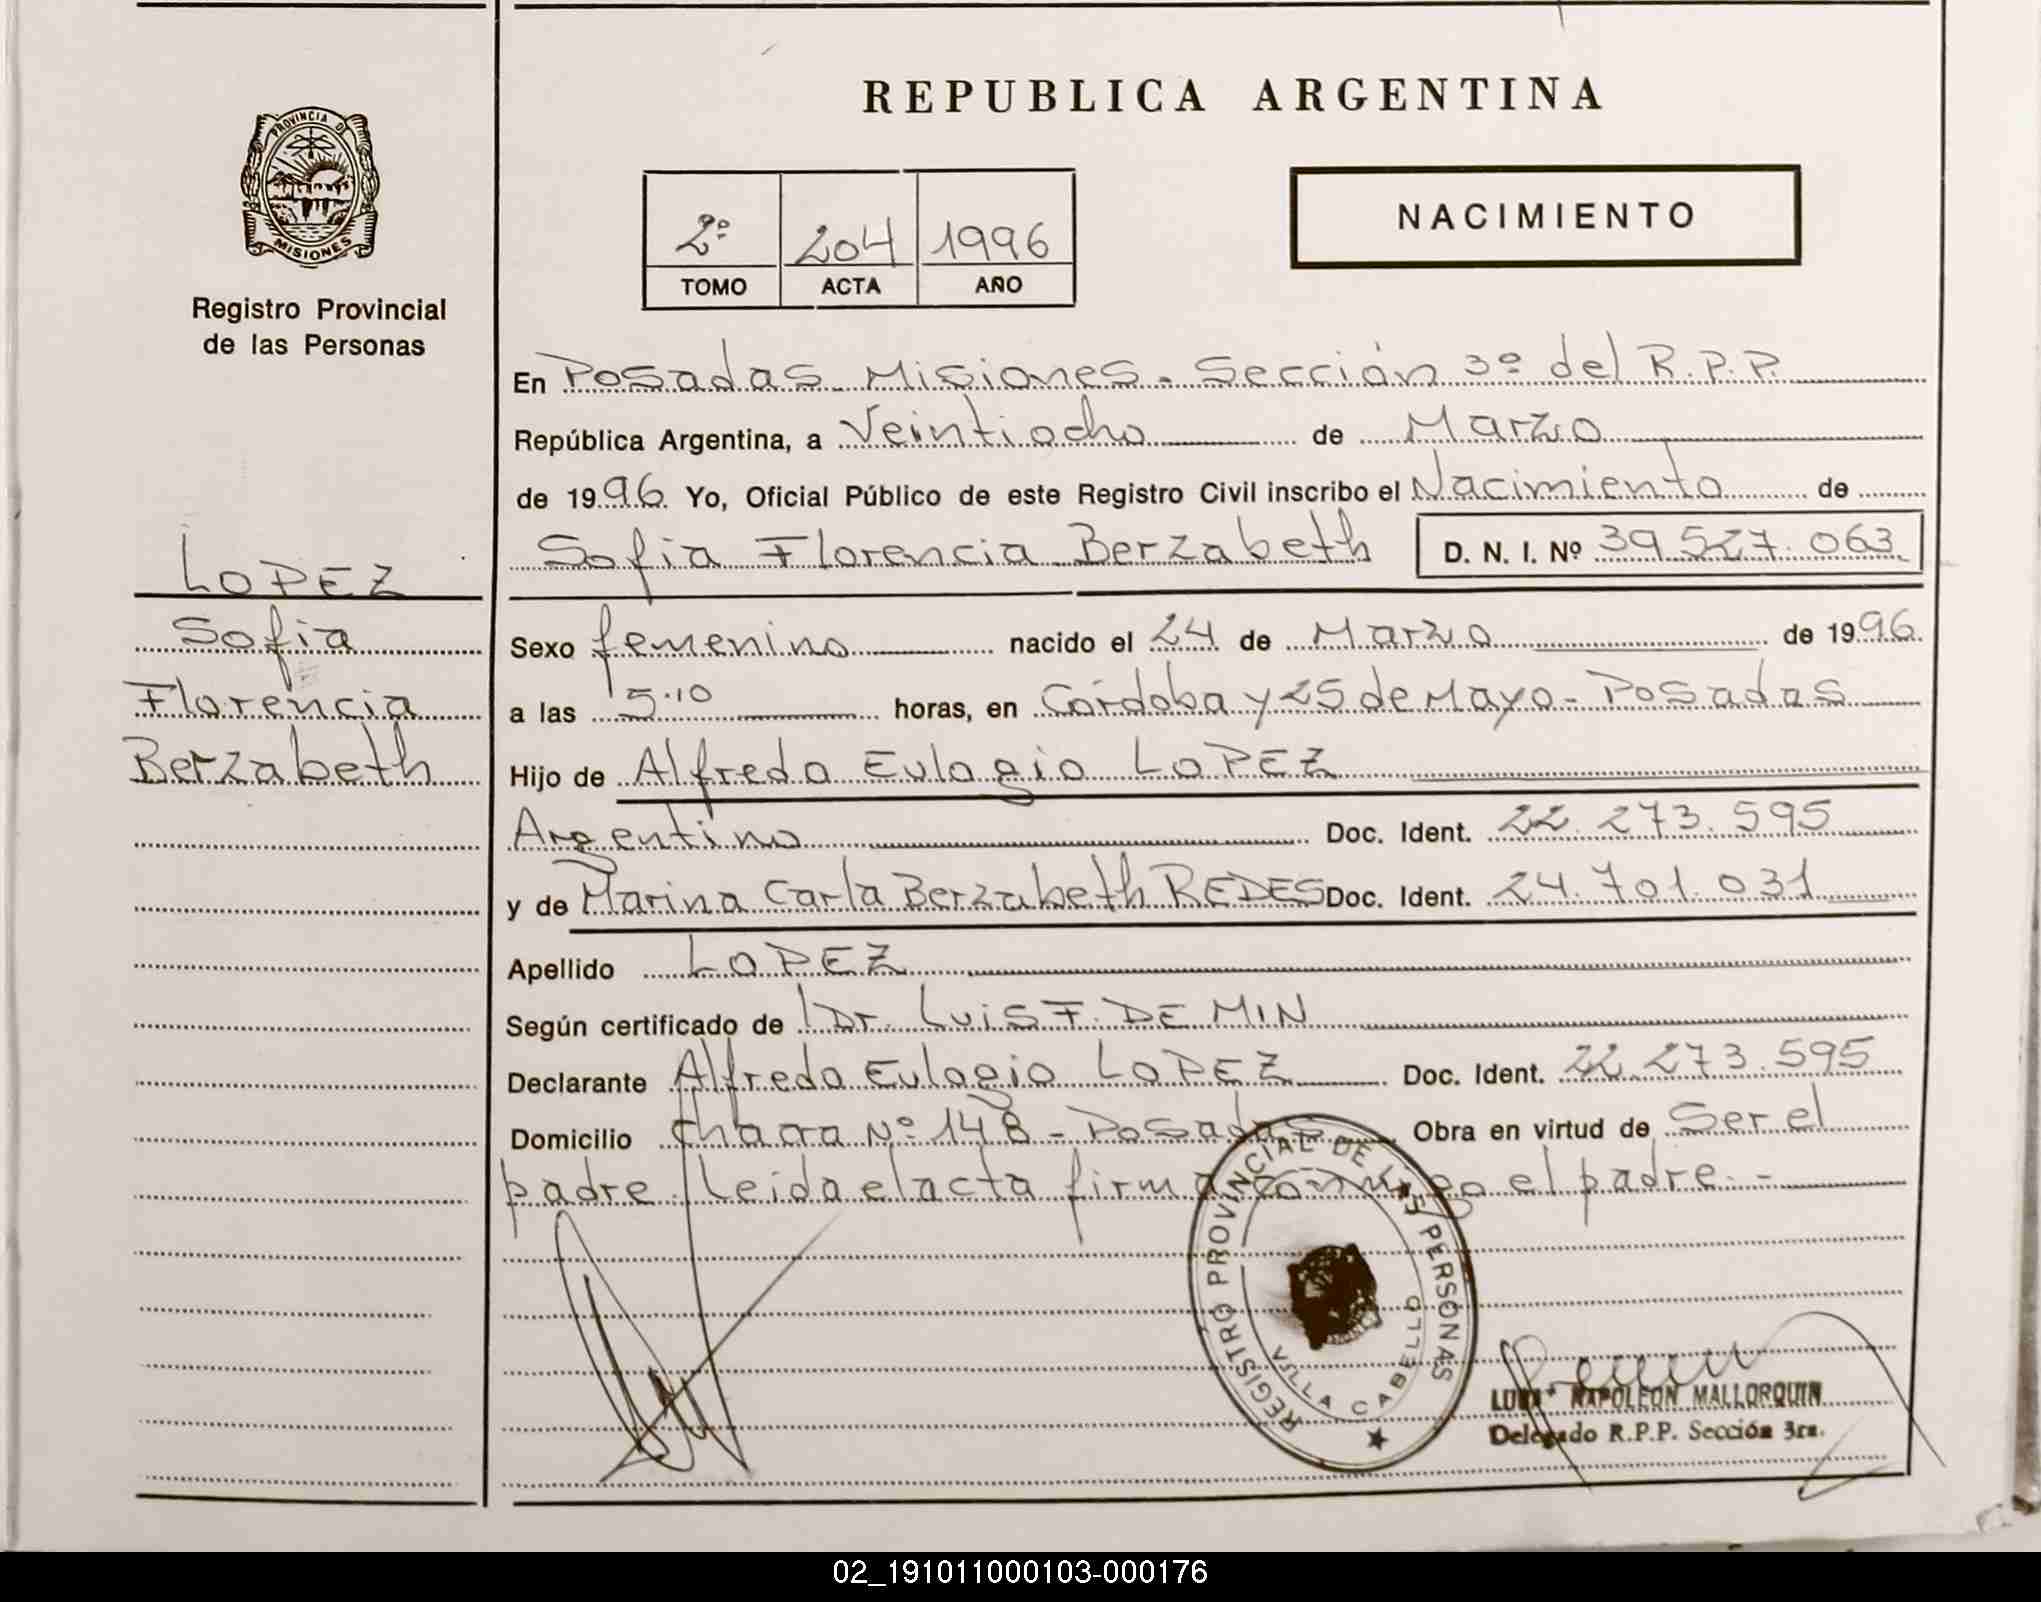 REPUBLICA ARGENTINA
PROVINCIA DE
MISIONES
Registro Provincial
de las Personas
2º 204 1996
TOMO ACTA AÑO
NACIMIENTO
En Posadas Misiones. Sección 3º del R.P.P.
República Argentina, a Veintiocho de Marzo
de 1996. Yo, Oficial Público de este Registro Civil inscribo el Nacimiento de
Sofia Florencia Berzabeth D. N. I. Nº 39.527.063
LOPEZ
Sofia
Florencia
Berzabeth
Sexo femenino nacido el 24 de Marzo de 1996.
a las 5.10 horas, en Córdoba y 25 de Mayo - Posadas
Hijo de Alfredo Eulogio LOPEZ
Argentino Doc. Ident. 22.273.595
y de Marina Carla Berzabeth REDES Doc. Ident. 24.701.031
Apellido LOPEZ
Según certificado de Dr. Luis F. DE MIN
Declarante Alfredo Eulogio LOPEZ Doc. Ident. 22.273.595
Domicilio Chacra Nº 148 - Posadas Obra en virtud de Ser el
padre. Leida el acta firma conmigo el padre. -
REGISTRO PROVINCIAL DE LAS PERSONAS
VILLA CABELLO
NAPOLEON MALLORQUIN
Delegado R.P.P. Sección 3ra.
02_191011000103-000176